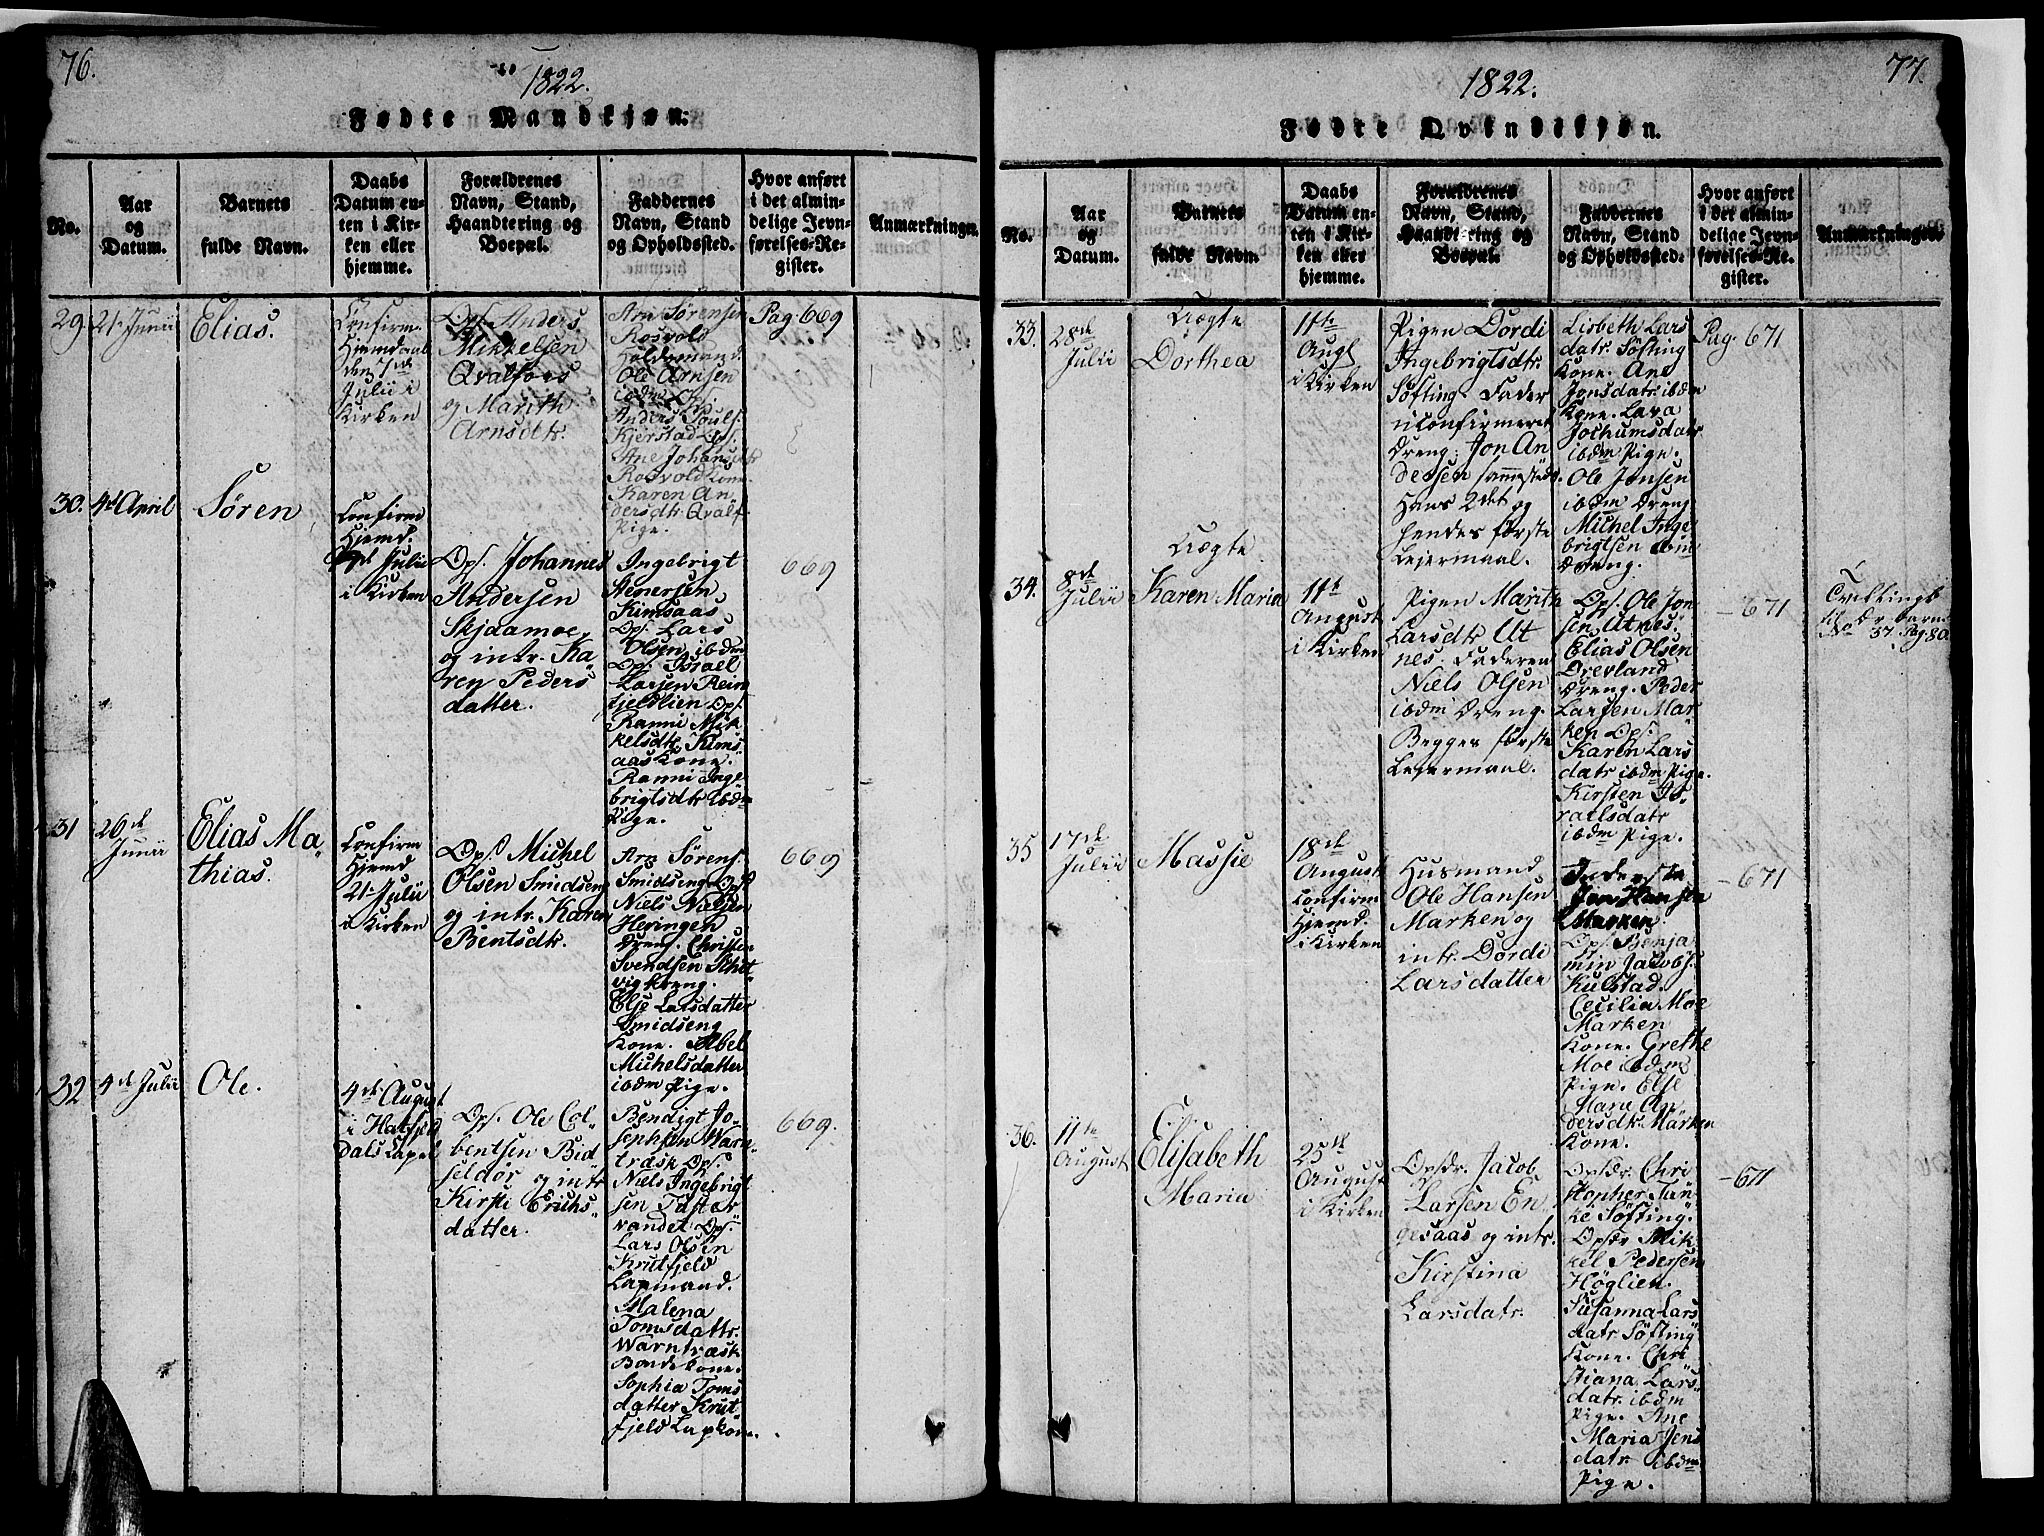 76.
1822.
Fødte Mandkjøn.
No.
Aar
og
Datum.
Barnets
fulde Navn.
Daabs
Datum en-
ten i Kir-
ken eller
hjemme.
Forældrenes
Navn, Stand,
Haandtering og
Boepæl.
Faddernes
Navn, Stand
og Opholdssted.
Hvor anført
i det almin-
delige Jevn-
førelses-Re-
gister.
Anmærkninger.
29
21. Junii
Elias.
Confirm.
Hjemdaab
den
Julii i
Kirken
Ops. Anders
Mikkelsen
Qvalfors
og Marith
Arnsdtr.
Arn Sørensen
Rosvold
Ole Arnsen
ibdm
Anders Pouls.
Kjerstad Ops.
Ane Johansdtr
Rosvold Kone
Karen An
dersdtr. Qvalf.
Pige.
Pag. 669
30.
4de April
Søren
Confirm
Hjemd.
Julii
i Kirken
Ops. Johannes
Andersen
Skjdamoe
og intr. Ka
ren Peders
datter.
Ingebrigt
Kimsaas
Ops. Lars
Olsen ibdm
Ops. Israel
Larsen Rein
fjeldlien Ops.
Ranni Mik
kelsdtr. Kims
aas Kone.
Ranni Inge
brigtsdtr ibdm
Pige.
669
31
26de
Junii
Elias Ma
thias.
Confirm
Hjemd
21. Julii
i Kirken
Ops. Michel
Olsen Smidseng
og intr. Karen
Bentsdtr.
Arn Sørens.
Smidseng Ops
Niels Nielsen
Heringen
Dreng. Christen
Svendsen
Dreng.
Else Larsdatter
Smidseng
Kone. Abel
Michelsdatter
ibdm Pige.
669
32
4de Julii
Ole.
4de August
i Hatfjeld
dals Capel
Ops. Ole Col-
bentsen Bid
seldør og intr
Kirsti Erichs
datter.
Bendigt Jo-
sephsen Warn
træsk Ops.
Niels Ingebrigt
sen Taster
vandet Ops.
Lars Olsen
Krutfjeld
Lapmand.
Malena
Tomsdattr.
Warntræsk
Bondekone.
Sophia Toms
datter Krut
fjeld Lapkone.
669.
77.
1822.
Fødte Qvindekjøn.
No.
Aar
og
Datum.
Barnets
fulde Navn.
Daabs
Datum en-
ten i Kir-
ken eller
hjemme.
Forældrenes
Navn, Stand,
Haandtering og
Boepæl.
Faddernes
Navn, Stand
og Opholdssted.
Hvor anført
i det almin-
delige Jevn-
førelses-Re-
gister.
Anmærkninger.
33.
28de
Julii
Uægte
Dorthea
11te
Augt
i Kirken
Pigen Dordi
Ingebrigtsdtr.
Søfting. Fader
uconfirmeret
Dreng: Jon An
dersen sammesteds.
Hans 2det og
hendes første
Leiermaal.
Lisbeth Lars
datr. Søfting
Kone. Ane
Jonsdatr. ibdm
Kone. Lava
Jochumsdatr
ibdm Pige.
Ole Jonsen
ibdm Dreng
Michel Inge
brigtsen ibdm
Dreng.
Pag. 671
34.
8de
Julii
Uægte
Karen Maria
11te
August
i Kirken
Pigen Marith
Larsdtr. Ut
nes. Faderen
Niels Olsen
ibdm Dreng.
Begges første
Leiermaal.
Ops. Ole Jon
sen Utnes.
Elias Olsen
Drevland
Dreng. Peder
Larsen Mar
ken Ops.
Karen Lars
datr ibdm Pige.
Kirsten Is-
raelsdatr
ibdm Pige.
- 671
Tvilling
til Dr. barn
No 37 Pag. 80
35
17de
Julii
Massie
18de
August
Confirm
Hjemd.
i Kirken
Husmand
Ole Hansen
Marken og
intr. Dordi
Larsdatter
Inderste
Jon Hansen
Marken.
Ops. Benja
min Jacobs.
Kulstad.
Cecilia Moe
Marken
Kone. Grethe
Moe ibdm
Pige. Else
Marie An
dersdtr. Marken
Kone.
- 671
36.
11te
August
Elisabeth
Maria
25de
August
i Kirken
Opsdr. Jacob
Larsen En
gesaas og intr.
Kirstina
Larsdatr.
Opsdr. Chri
stopher Tan
ke Søfting.
Opsdr Mik
kel Pedersen
Høglien.
Susanna Lars
datr Søfting
Kone. Chri
stiana Lars
datr. ibdm
Pige. Ane
Maria Jens
datr. ibdm
Pige.
- 671